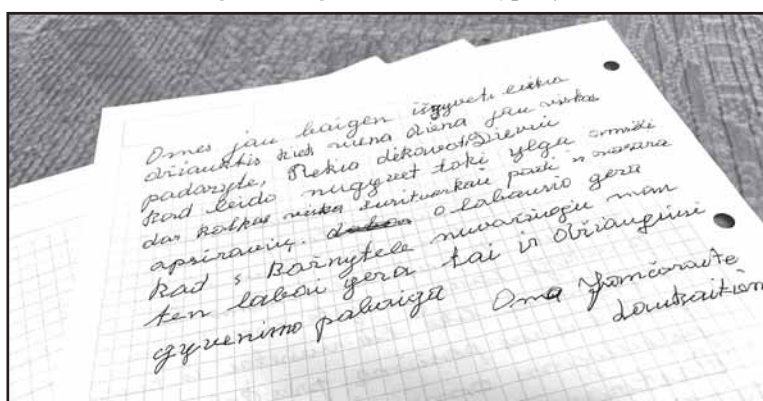 Omes jau baigen išgyvet. liekia
džiauktis kiek viena diena jau viskas
padaryte, Riekia dekowot Dievui
kad leido nugyvet toki ylga omžiu
dar kolkas viska susitvarkau pati ir nuvara
apsiraviu. o labausio gera
kad į Bažnytele nuvažiuoju man
ten laboi gera tai ir džiaugiuosi
gyvenimo pabaiga Oma